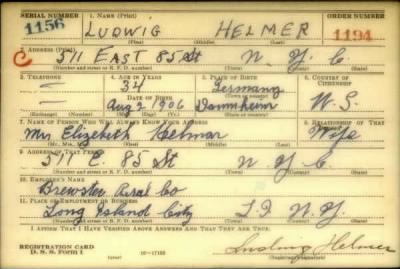 SERIAL NUMBER 1. NAME (Print) ORDER NUMBER
1156 LUDWIG HELMER 1194
(First) (Middle) (Last)
2. ADDRESS (Print)
C 511 EAST 85 St N. Y. C.
(Number and street or R. F. D. number) (Town) (County) (State)
3. TELEPHONE 4. AGE IN YEARS 5. PLACE OF BIRTH 6. COUNTRY OF CITIZENSHIP
— 34 Germany
DATE OF BIRTH (Town or county)
— Aug 2 1906 U.S.
(Exchange) (Number) (Mo.) (Day) (Yr.) (State or country)
7. NAME OF PERSON WHO WILL ALWAYS KNOW YOUR ADDRESS 8. RELATIONSHIP OF THAT PERSON
Mrs Elizabeth Helmar Wife
(Mr., Mrs., Miss) (First) (Middle) (Last)
9. ADDRESS OF THAT PERSON
511 E. 85 St N. Y. C.
(Number and street or R. F. D. number) (Town) (County) (State)
10. EMPLOYER'S NAME
Brewster Co
11. PLACE OF EMPLOYMENT OR BUSINESS
Long Island City L. I N. Y.
(Number and street or R. F. D. number) (Town) (County) (State)
I AFFIRM THAT I HAVE VERIFIED ABOVE ANSWERS AND THAT THEY ARE TRUE.
REGISTRATION CARD
D. S. S. Form 1 16—17105 Ludwig Helmer